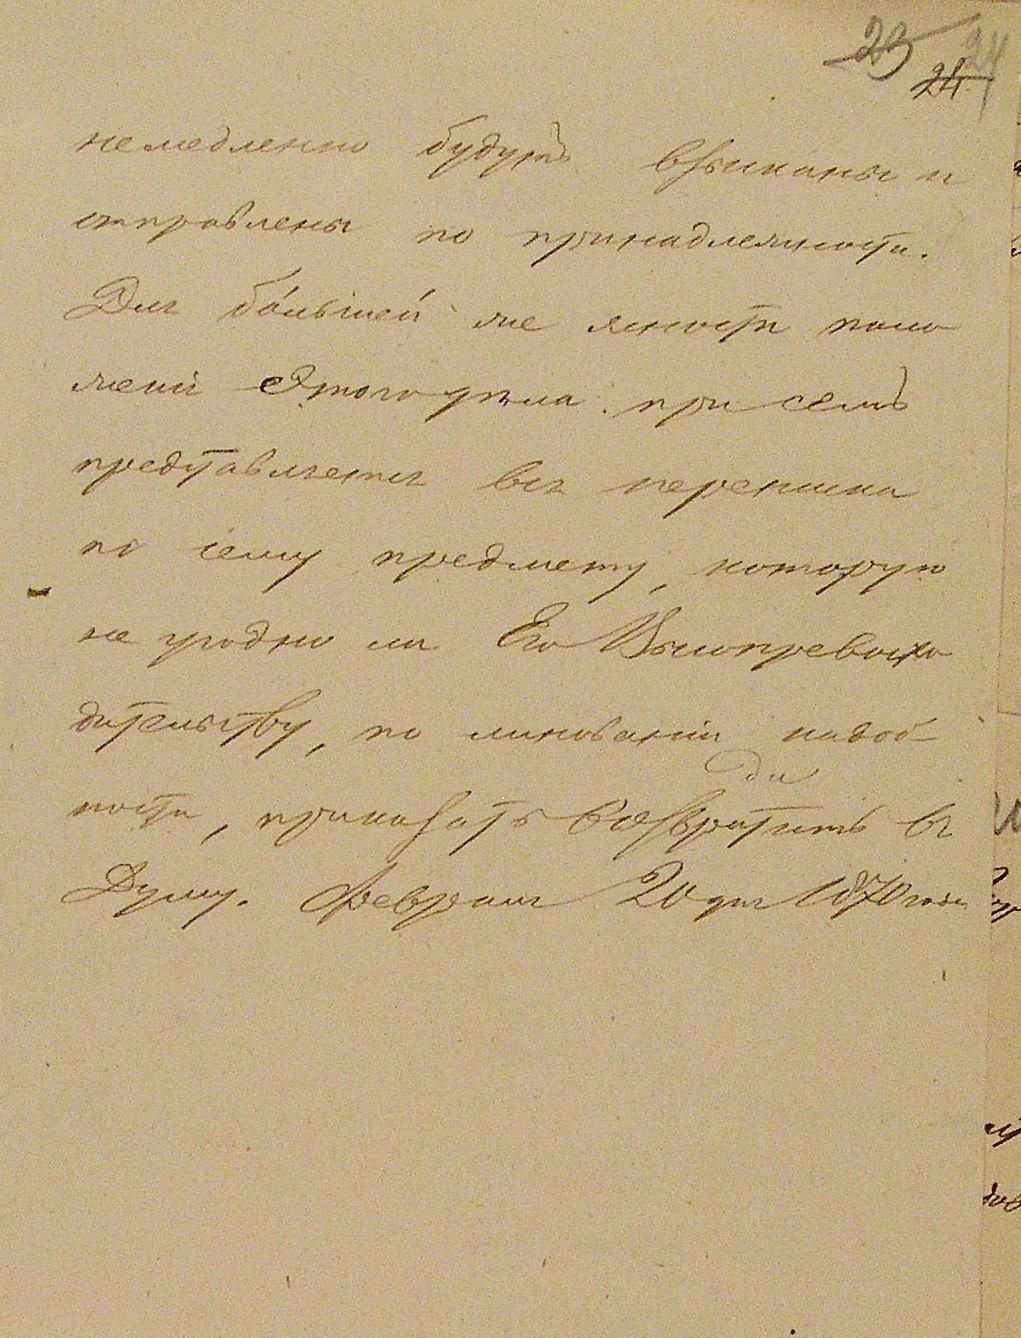 23 24
24
немедленно будутъ взысканы и
отправлены по принадлежности.
Для большей же ясности поло
женія этого дѣла при семъ
представляется вся переписка
по сему предмету, которую
не угодно ли Его Высокопревосхо
дительству, по минованіи надоб
ности, приказать возвратить въ
Думу. Февраля 20 дня 1870 года